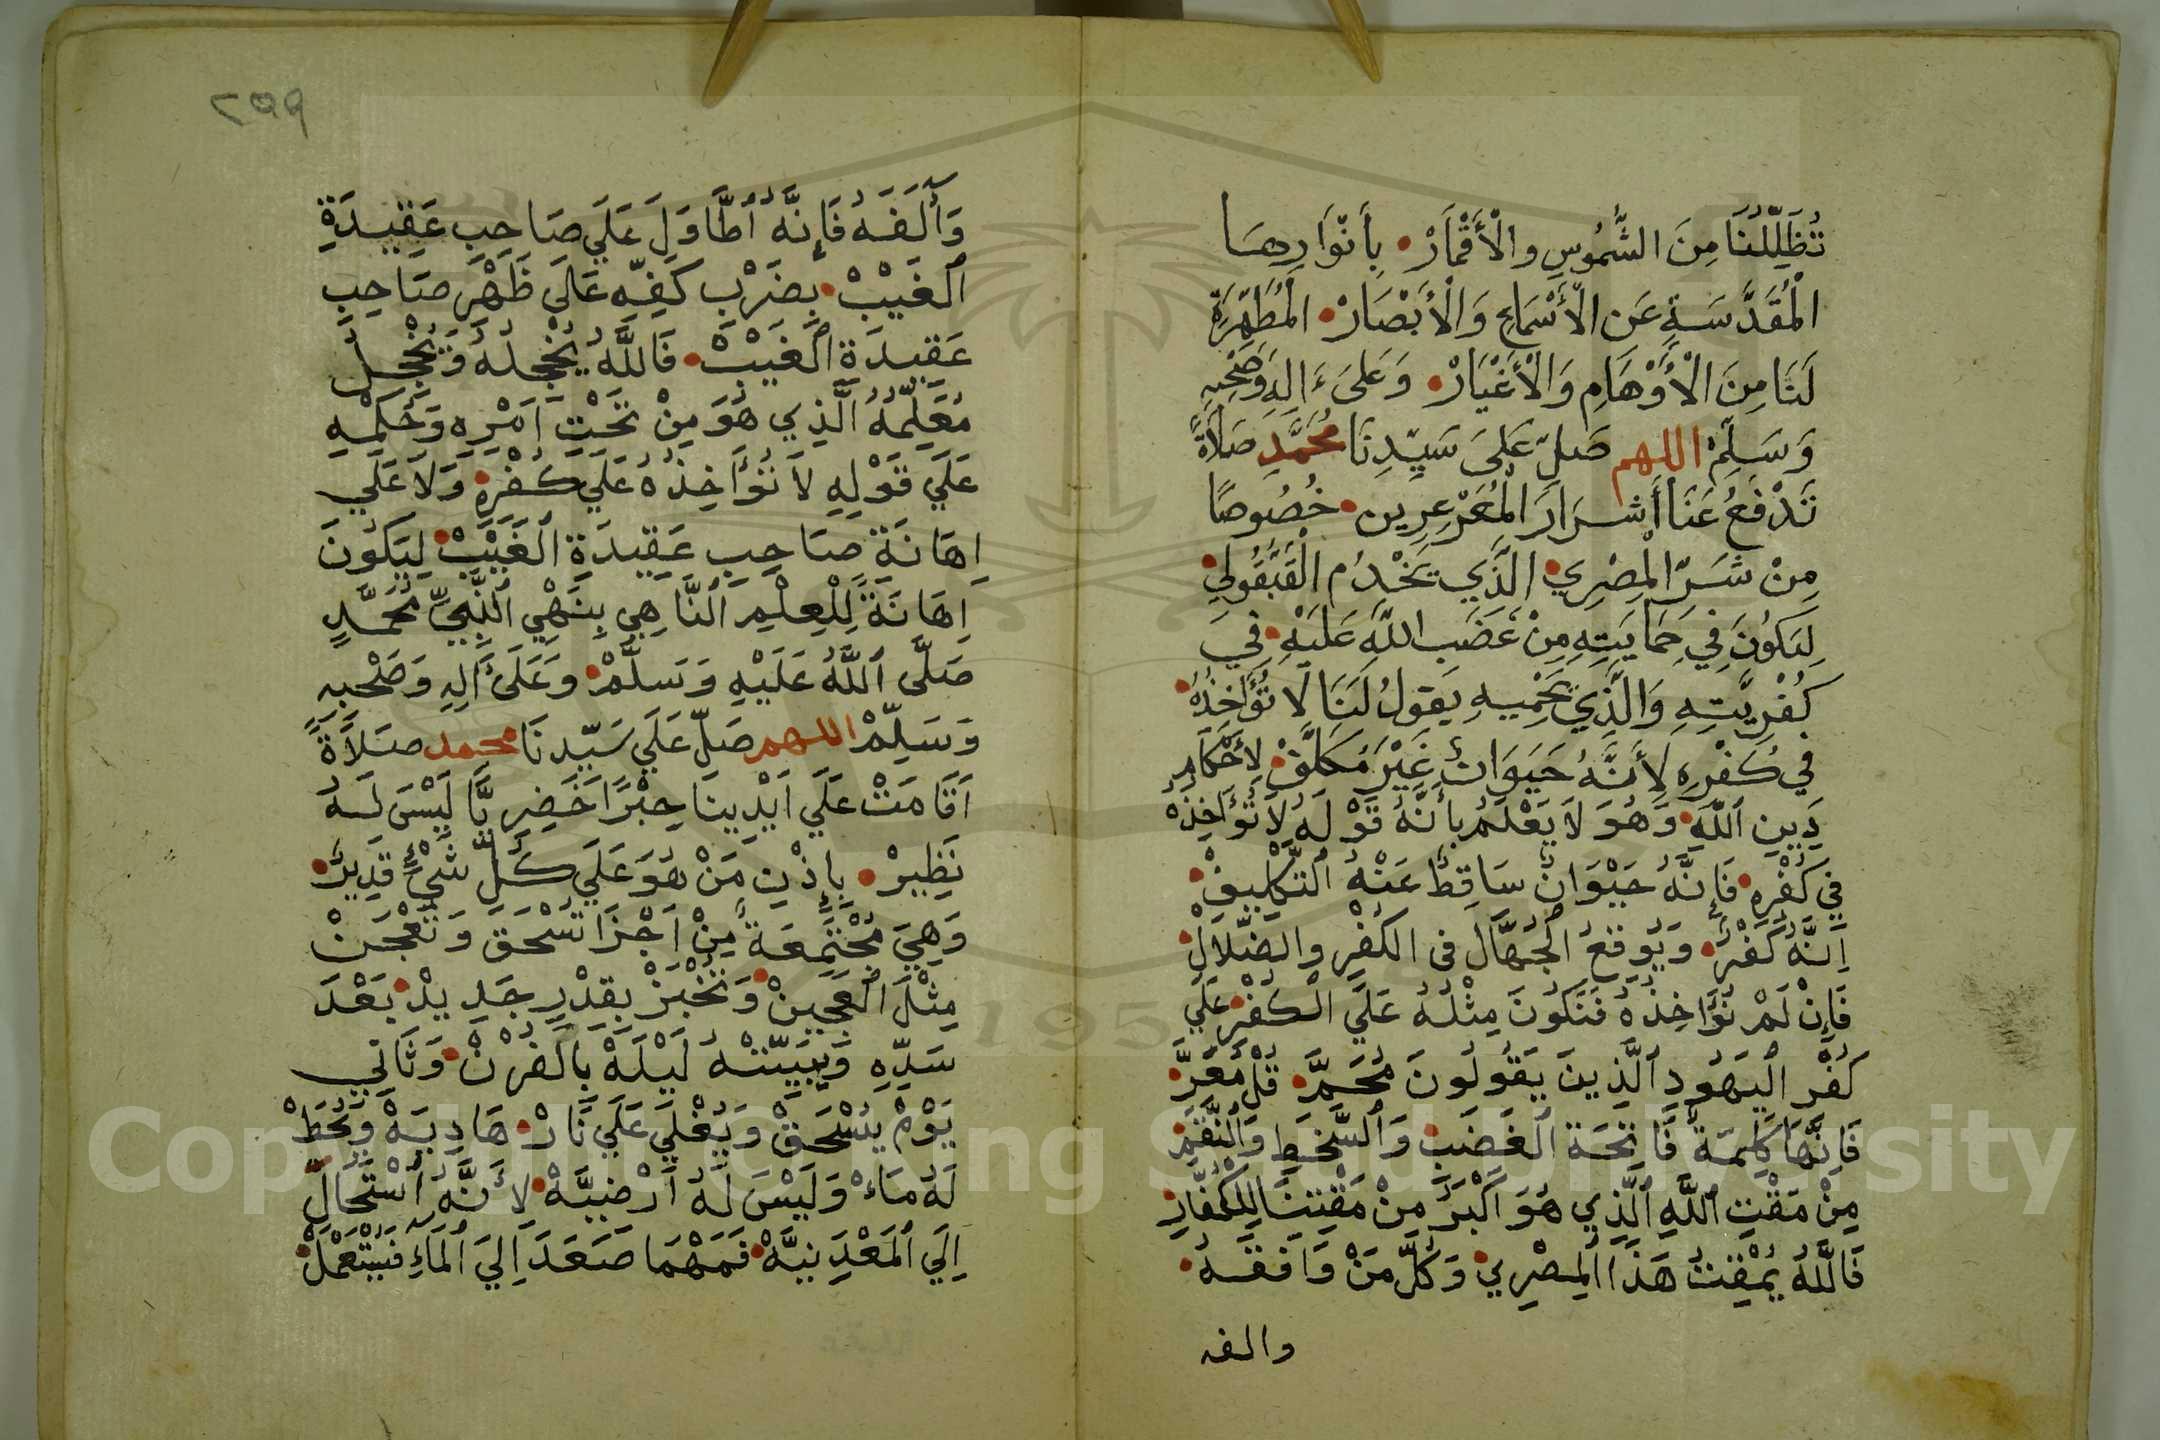 تُظَلِّلُنَا مِنَ الشُّمُوسِ والْأَقْمَارْ • بِأَنْوَارِهَا
الْمُقَدَّسَةِ عَنِ الْأَسْمَاعِ وَالْأَبْصَارْ • الْمُطَهِّرَةِ
لَنَا مِنَ الْأَوْهَامِ وَالْأَغْيَارْ • وَعَلَىَ ءَالِهِ وَصَحْبِهِ
وَسَلِّمْ اللهم صَلِّ عَلَىَ سَيِّدِنَا مُحَمَّدٍ صَلَاةً
تَدْفَعُ عَنَا أَشْرَارَ الْمُعَرْعِرِين • خُصُوصًا
مِنْ شَرِّ الْمِصْرِي • الَّذِي يَخْدُم الْقَبَّقُولِي •
لِيَكُونَ فِي حِمَايَتِهِ مِنْ غَضَبِ اللَّهِ عَلَيْهِ • فِيَ
كُفْرِيَّتِهِ وَالَّذِي يَحْمِيهِ يَقُولُ لَنَا لَا تُؤَاخِذُهُ •
فِي كُفْرِهِ لِأَنَّهُ حَيَوَانٌ غَيْرَ مُكَلَّفْ • لِأَحْكَامِ
دِينِ اللَّهِ • وَهُوَ لَا يَعْلَمُ بِأَنَّهُ قَوْلَهُ لَا تُؤَاخِذْهُ
فِي كُفْرِهِ • فَإِنَّهُ حَيْوَانٌ سَاقِطٌ عَنْهُ التَّكْلِيفْ •
اِنَّهُ كُفْرٌ • وَيُوقِعُ الْجُهَّالَ فى الكُفْرِ والضَّلَالْ •
فَإِنْ لَمْ نُؤَاخِذْهُ فَنَكُونَ مِثْلُهُ عَلَيَ الْكُفْرِ • عَلَيَ
كُفْرِ الْيَهُودِ الَّذِينَ يَقُولُونَ مُحَمَّ • قُلْ مُعَرَّ •
فَاِنَّهَا كَلِمَةٌ فَاتِحَةَ الْغَضَبِ • وَالسَّخَطِ وَالنِّقَمِ
مِنْ مَقْتِ اللَّهِ الَّذِي هُوَ اَكْبَرَ مِنْ مَقْتِنَا لِلْكُفَّارِ
فَاللَّهُ يُمْقِتُ هَذَا الْمِصْرِي • وَكُلِّ مَنْ وَافَقَهُ •
والفه
٢٩٩
وَأَلَفَهُ فَإِنَّهُ اُطَّاوَلَ عَلَي صَاحِبِ عَقِيدَةِ
الْغَيْبْ • بِضَرْبِ كَفِّهِ عَلَى ظَهْرِ صَاحِبِ
عَقِيدَةِ الْغَيْبْ • فَاللَّهُ يُخْجِلُهُ وَيُخْجِلُ
مُعَلِّمُهُ الَّذِي هُوَ مِنْ تَحْتِ اَمْرِهِ وَحُكْمِهِ
عَلَيَ قَوْلِهِ لَا نُؤَاخِذُهُ عَلَي كُفْرِهِ • وَلَا عَلَي
اِهَانَةِ صَاحِبِ عَقِيدَةِ الْغَيْبْ • لِيَكُونَ
اِهَانَةً لِلْعِلْمِ النَّاهِي بِنَهْيِ النَّبِيِّ مُحَمَّدٍ
صَلَّى اللَّهُ عَلَيْهِ وَسَلَّمْ • وَعَلَىَ اَلِهِ وَصَحْبِهِ
وَسَلِّمْ اللهم صَلِّ عَلَي سَيِّدِنَا محمد صَلَاةً
اَقَامَتْ عَلَي اَيْدِينَا حِبْرًا خَضِرِيًّا لَيْسَ لَهُ
نَظِيرْ • بِإِذْنِ مَنْ هُوَ عَلَي كُلِّ شَيْءٍ قَدِيرٌ •
وَهِيَ مُجْتَمِعَةٌ مِنْ اَجْزَا تُسْحَقَ وَتُعْجَنْ
مِثْلَ الْعَجِينْ • وَتُخْبَزْ بِقِدْرِ جَدِيدْ • بَعْدَ
سَدِّهِ وَيُبَيِّتْهُ لَيْلَهْ بِالْفُرْنْ • وَثَانِي
يَوْمْ يُسْحَقْ وَيُغْلَي عَلَي نَارْ • هَادِيَهْ وَيُحَطْ
لَهُ مَاءْ وَلَيْسَ لَهُ اَرْضِيَّهْ • لِأَنَّهُ اُسْتَحَالَ
اِلَي الْمَعْدِنِيَّهْ • فَمَهْمَا صَعَدَ اِلَيَ الْمَاءِ فَيُسْتَعْمَلْ •